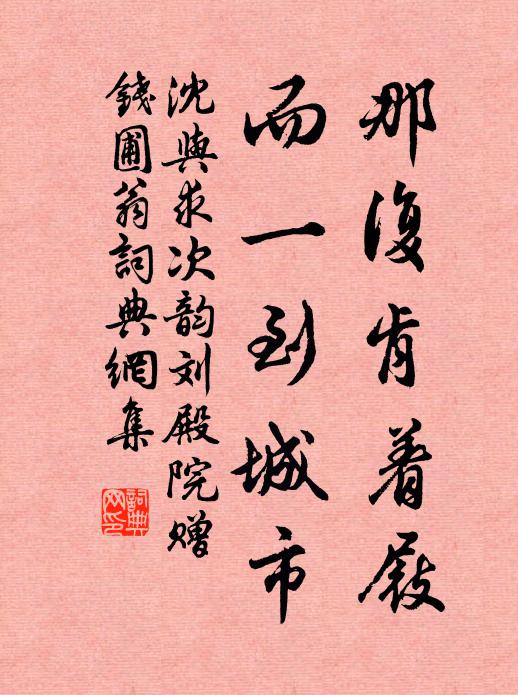 那復肯着屐
而一到城市
沈與求次韵刘殿院赠
錢圃翁詞典網集
詞典网印